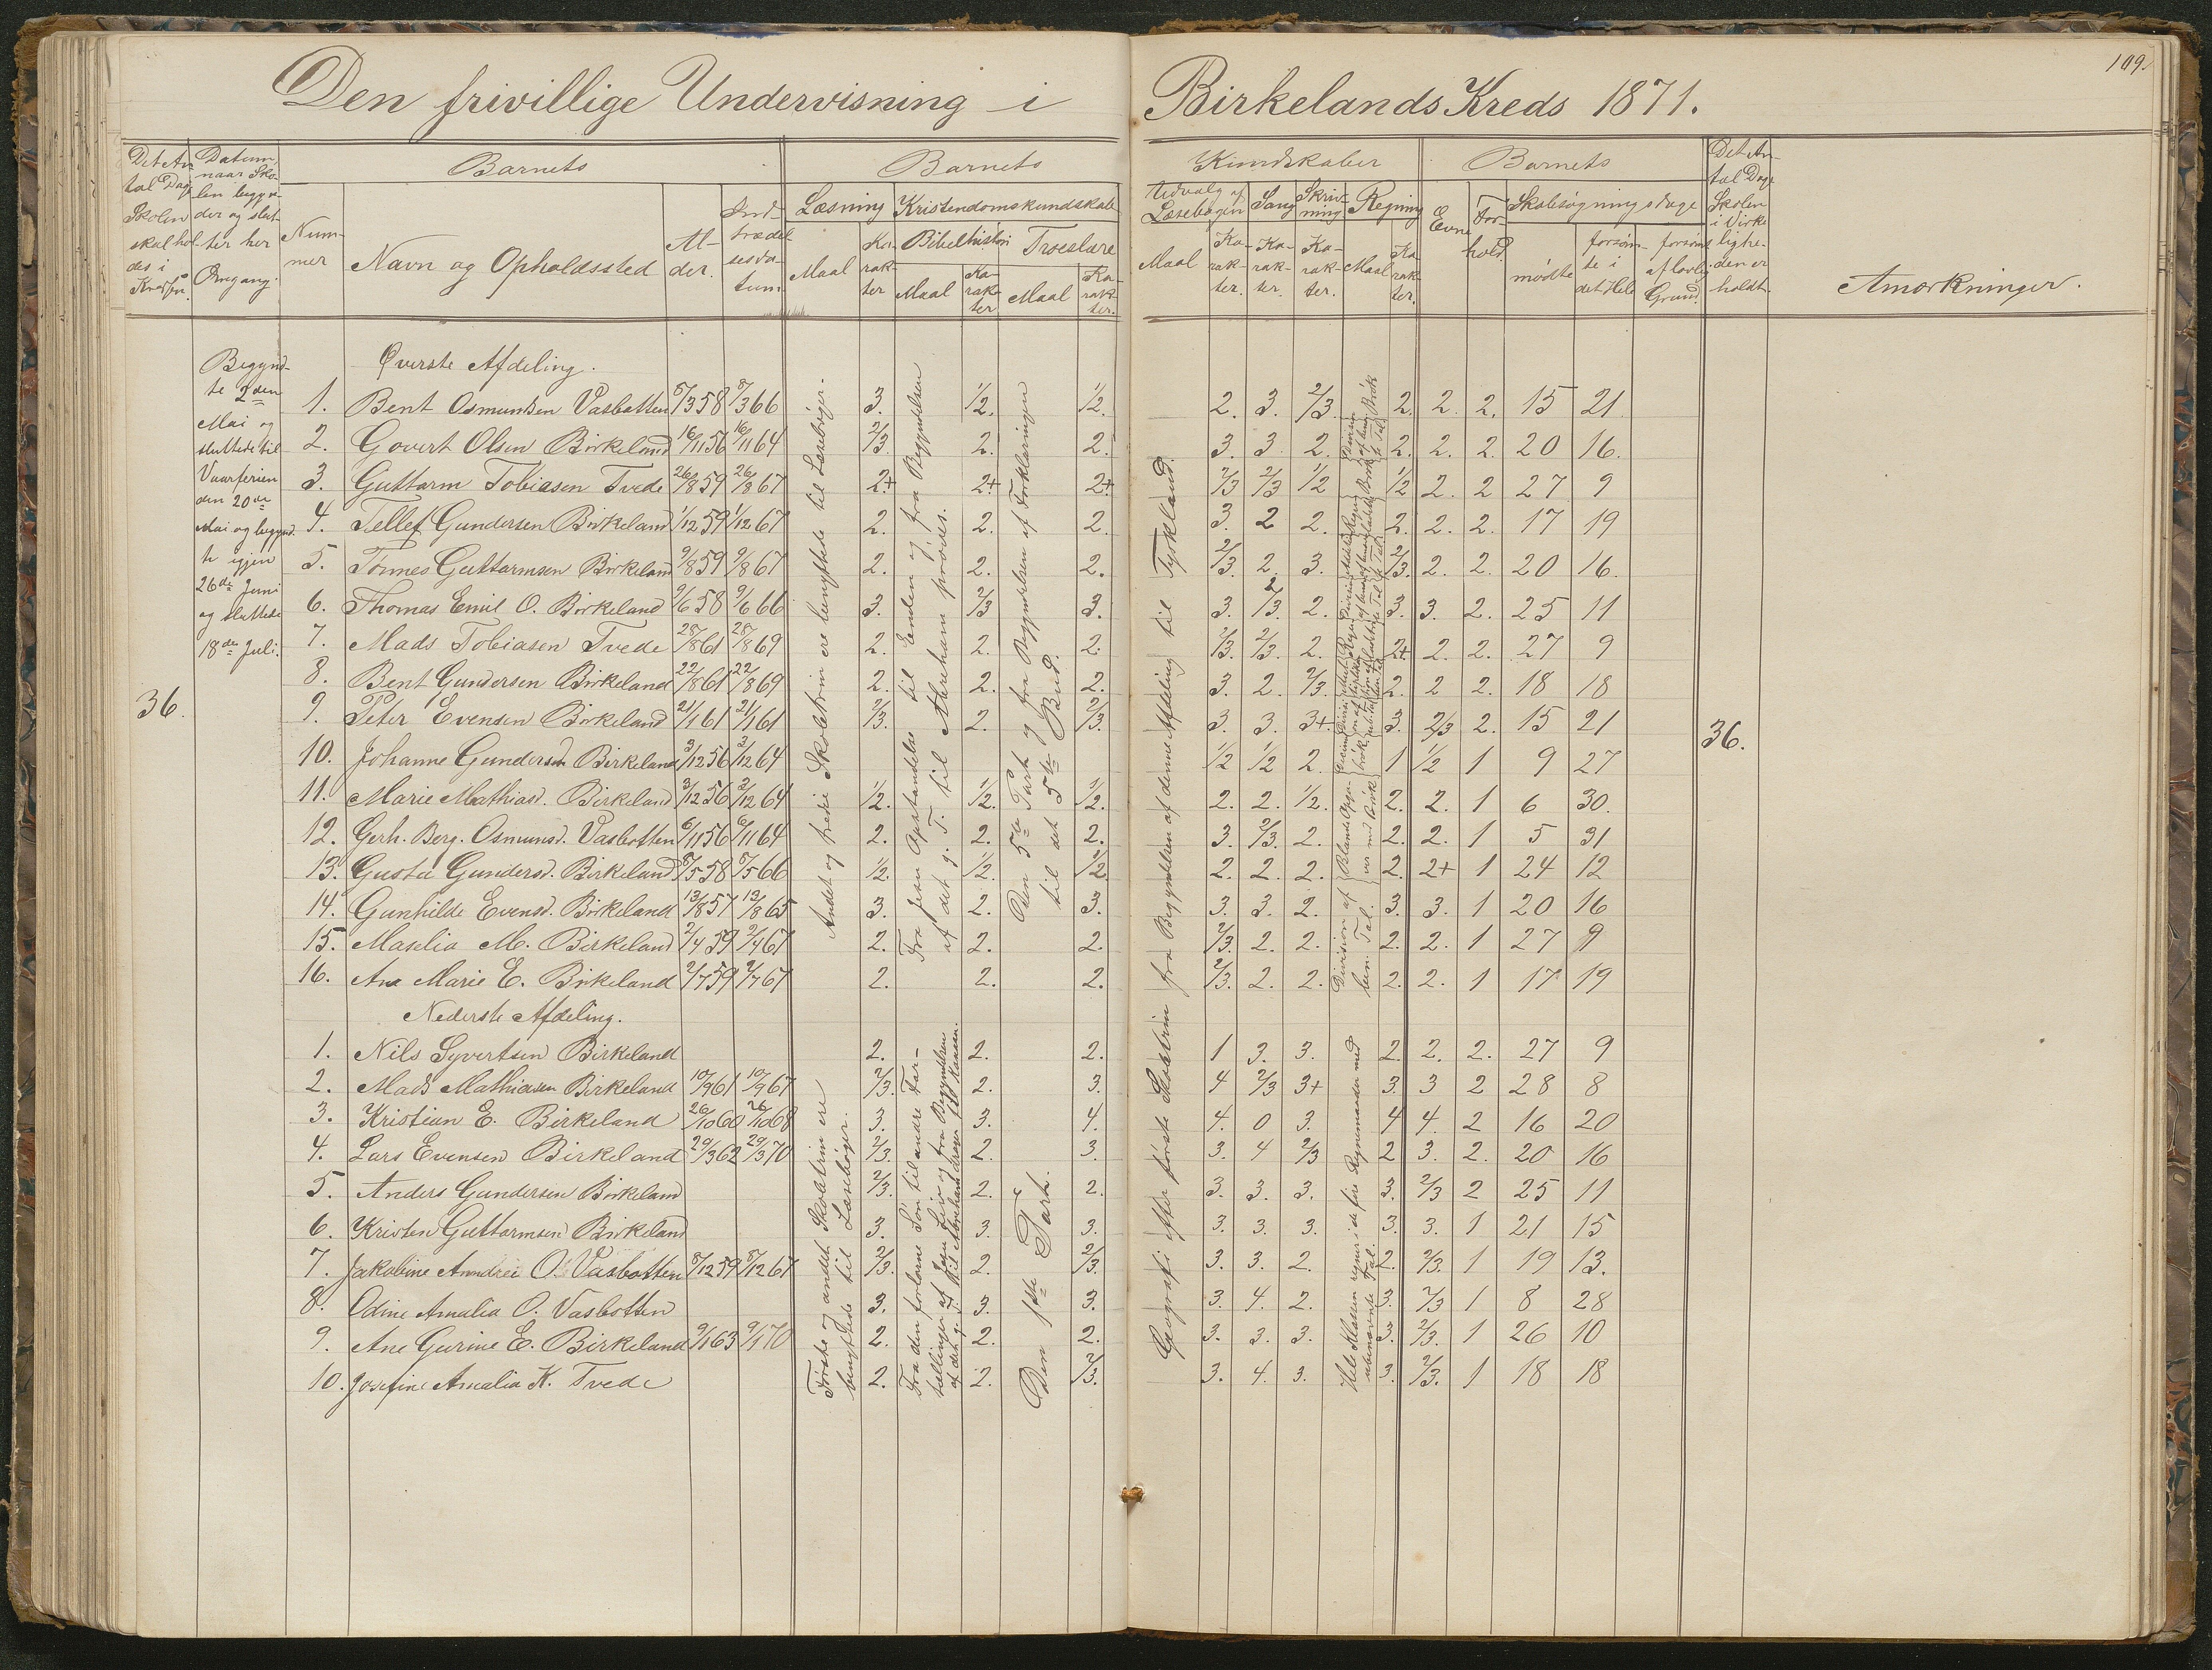 109.
Den frivillige Undervisning i Birkelands Kreds 1871.
Det An-
tal Dage
Skolen
skal hol-
des i
Kredsen.
Datum,
naar Sko-
len begyn-
der og slut-
ter her
Omgang.
Barnets
Num-
mer
Navn og Opholdssted
Al-
der.
Ind-
trædel-
sesda-
tum
Barnets
Læsning
Maal
Ka-
rak-
ter
Kristendomskundskab
Bibelhistori
Maal
Ka-
rak-
ter
Troeslære
Maal
Ka-
rak-
ter.
Kundskaber
Udvalg af
Læsebogen
Maal
Ka-
rak-
ter.
Sang
Ka-
rak-
ter.
Skriv-
ning
Ka-
rak-
ter.
Regning
Maal
Ka-
rak-
ter.
Barnets
Evne
For-
hold.
Skolesøgningsdage
mødte
forsøm-
te i
det Hele
forsømt
af lovlig
Grund.
Det An-
tal Dage
Skolen
i Virke-
lighe-
den er
holdt.
Anmærkninger.
Begynd-
te 2den
Mai og
sluttede til
Vaarferien
den 20de
Mai og begynd-
te igjen
26de Juni
og sluttede
18de Juli.
36.
Øverste Afdeling.
1. Bent Osmundsen Vasbotten 8/3 58 8/3 66 3. 1/2. 1/2. 2. 3. 2/3. 2. 2. 2. 15 21
2. Govert Olsen Birkeland 16/11 56 16/11 64 2/3 2. 2. 3. 3 2. 2. 2. 2. 20 16.
3. Guttorm Tobiasen Tvede 26/8 59 26/8 67 2+ 2+ 2+ 2/3 2/3 1/2 1/2 2. 2 27 9
4. Tellef Gundersen Birkeland 1/12 59 1/12 67 2. 2. 2. 3. 2 2. 2. 2. 2. 17 19
5. Tönnes Guttormsen Birkeland 9/8 59 9/8 67 2. 2. 2. 2/3. 2. 3. 2/3. 2. 2. 20 16.
6. Thomas Emil O. Birkeland 9/6 58 9/6 66 3. 2/3 3. 3. 2/3. 2. 3. 3. 2. 25 11
7. Mads Tobiasen Tvede 28/8 61 28/8 69 2. 2. 2. 2/3. 2/3. 2. 2+ 2. 2. 27 9
8. Bent Gundersen Birkeland 22/8 61 22/8 69 2. 2. 2. 3. 2. 2/3. 2. 2 2. 18 18
9. Peter Evensen Birkeland 21/1 61 21/1 61 2/3. 2. 2/3. 3. 3. 3+ 3. 2/3 2. 15 21
10. Johanne Gundersd. Birkeland 3/12 56 3/12 64 1/2 1/2 2. 1 1/2 1 9 27
11. Marie Mathiasd. Birkeland 3/12 56 3/12 64 1/2. 1/2. 1/2. 2. 2. 1/2. 2. 2. 1 6 30.
12. Gerh. Berg. Osmunsd. Vasbotten 6/11 56 6/11 64 2. 2. 2. 3. 2/3. 2. 2. 2. 1 5 31
13. Gusta Gundersd. Birkeland 8/5 58 8/5 66 1/2. 1/2. 1/2. 2. 2. 2. 2. 2+ 1 24 12
14. Gunhilde Evensd. Birkeland 13/8 57 13/8 65 3. 2. 3. 3. 3. 2. 3. 3. 1 20 16
15. Maselia M. Birkeland 2/4 59 2/4 67 2. 2. 2. 2/3. 2. 2. 2. 2. 1 27 9
16. Ane Marie E. Birkeland 2/7 59 2/7 67 2. 2. 2. 2/3. 2. 2. 2. 2. 1 17 19
36.
Andet og tredie Skoletrin ere benyttede til Læsebøger.
Fra Jesu Opstandelse til Enden og fra Begyndelsen
af det g. T. til Abraham prøvedes.
Den 5te Part og fra Begyndelsen af Forklaringen
til det 5te Bud.
Geografi efter første Skoletrin fra Begyndelsen af denne Afdeling til Tyskland.
Division af
hen. Tal.
Nederste Afdeling.
1. Nils Syvertsen Birkeland 2. 2. 2. 1 3. 3. 2. 2. 2. 27 9
2. Mads Mathiasen Birkeland 10/9 61 10/9 67 2/3. 2. 3. 4 2/3 3+ 3. 3 2 28 8
3. Kristian E. Birkeland 26/10 60 26/10 68 3. 3. 4. 4. 0 3. 4 4. 2 16 20
4. Lars Evensen Birkeland 29/3 62 29/3 70 2/3. 2. 3. 3. 4 2/3 2 3. 2. 20 16
5. Anders Gundersen Birkeland 2/3. 2. 2. 3. 3. 3. 3. 2/3 2 25 11
6. Kristen Guttormsen Birkeland 3. 3. 3. 3. 3. 3. 3. 3. 1 21 15
7. Jakobine Anndrei O. Vasbotten 8/12 59 8/12 67 2/3. 2. 2/3. 3. 3. 2. 2. 2/3. 1 19 13.
8. Odine Amalia O. Vasbotten 3. 3. 3. 3. 4. 2. 3. 2/3 1 8 28
9. Ane Gurine E. Birkeland 9/1 63 9/1 70 2. 2. 2. 3. 3. 3. 3. 2/3. 1 26 10
10. Josefine Amalia K. Tvede 2. 2. 2/3. 3. 4. 3. 3. 2/3. 1 18 18
Første og andet Skoletrin ere
benyttede til Læsebøger.
Fra den forlorne Søn til andre For-
tællinger af Jesu Liv og fra Begyndelsen
af det g. T. til Abraham drager til Kanaan.
Den 1ste Part.
Hele Klassen regner i de fire Regnemaader med
ubenævnte Tal.